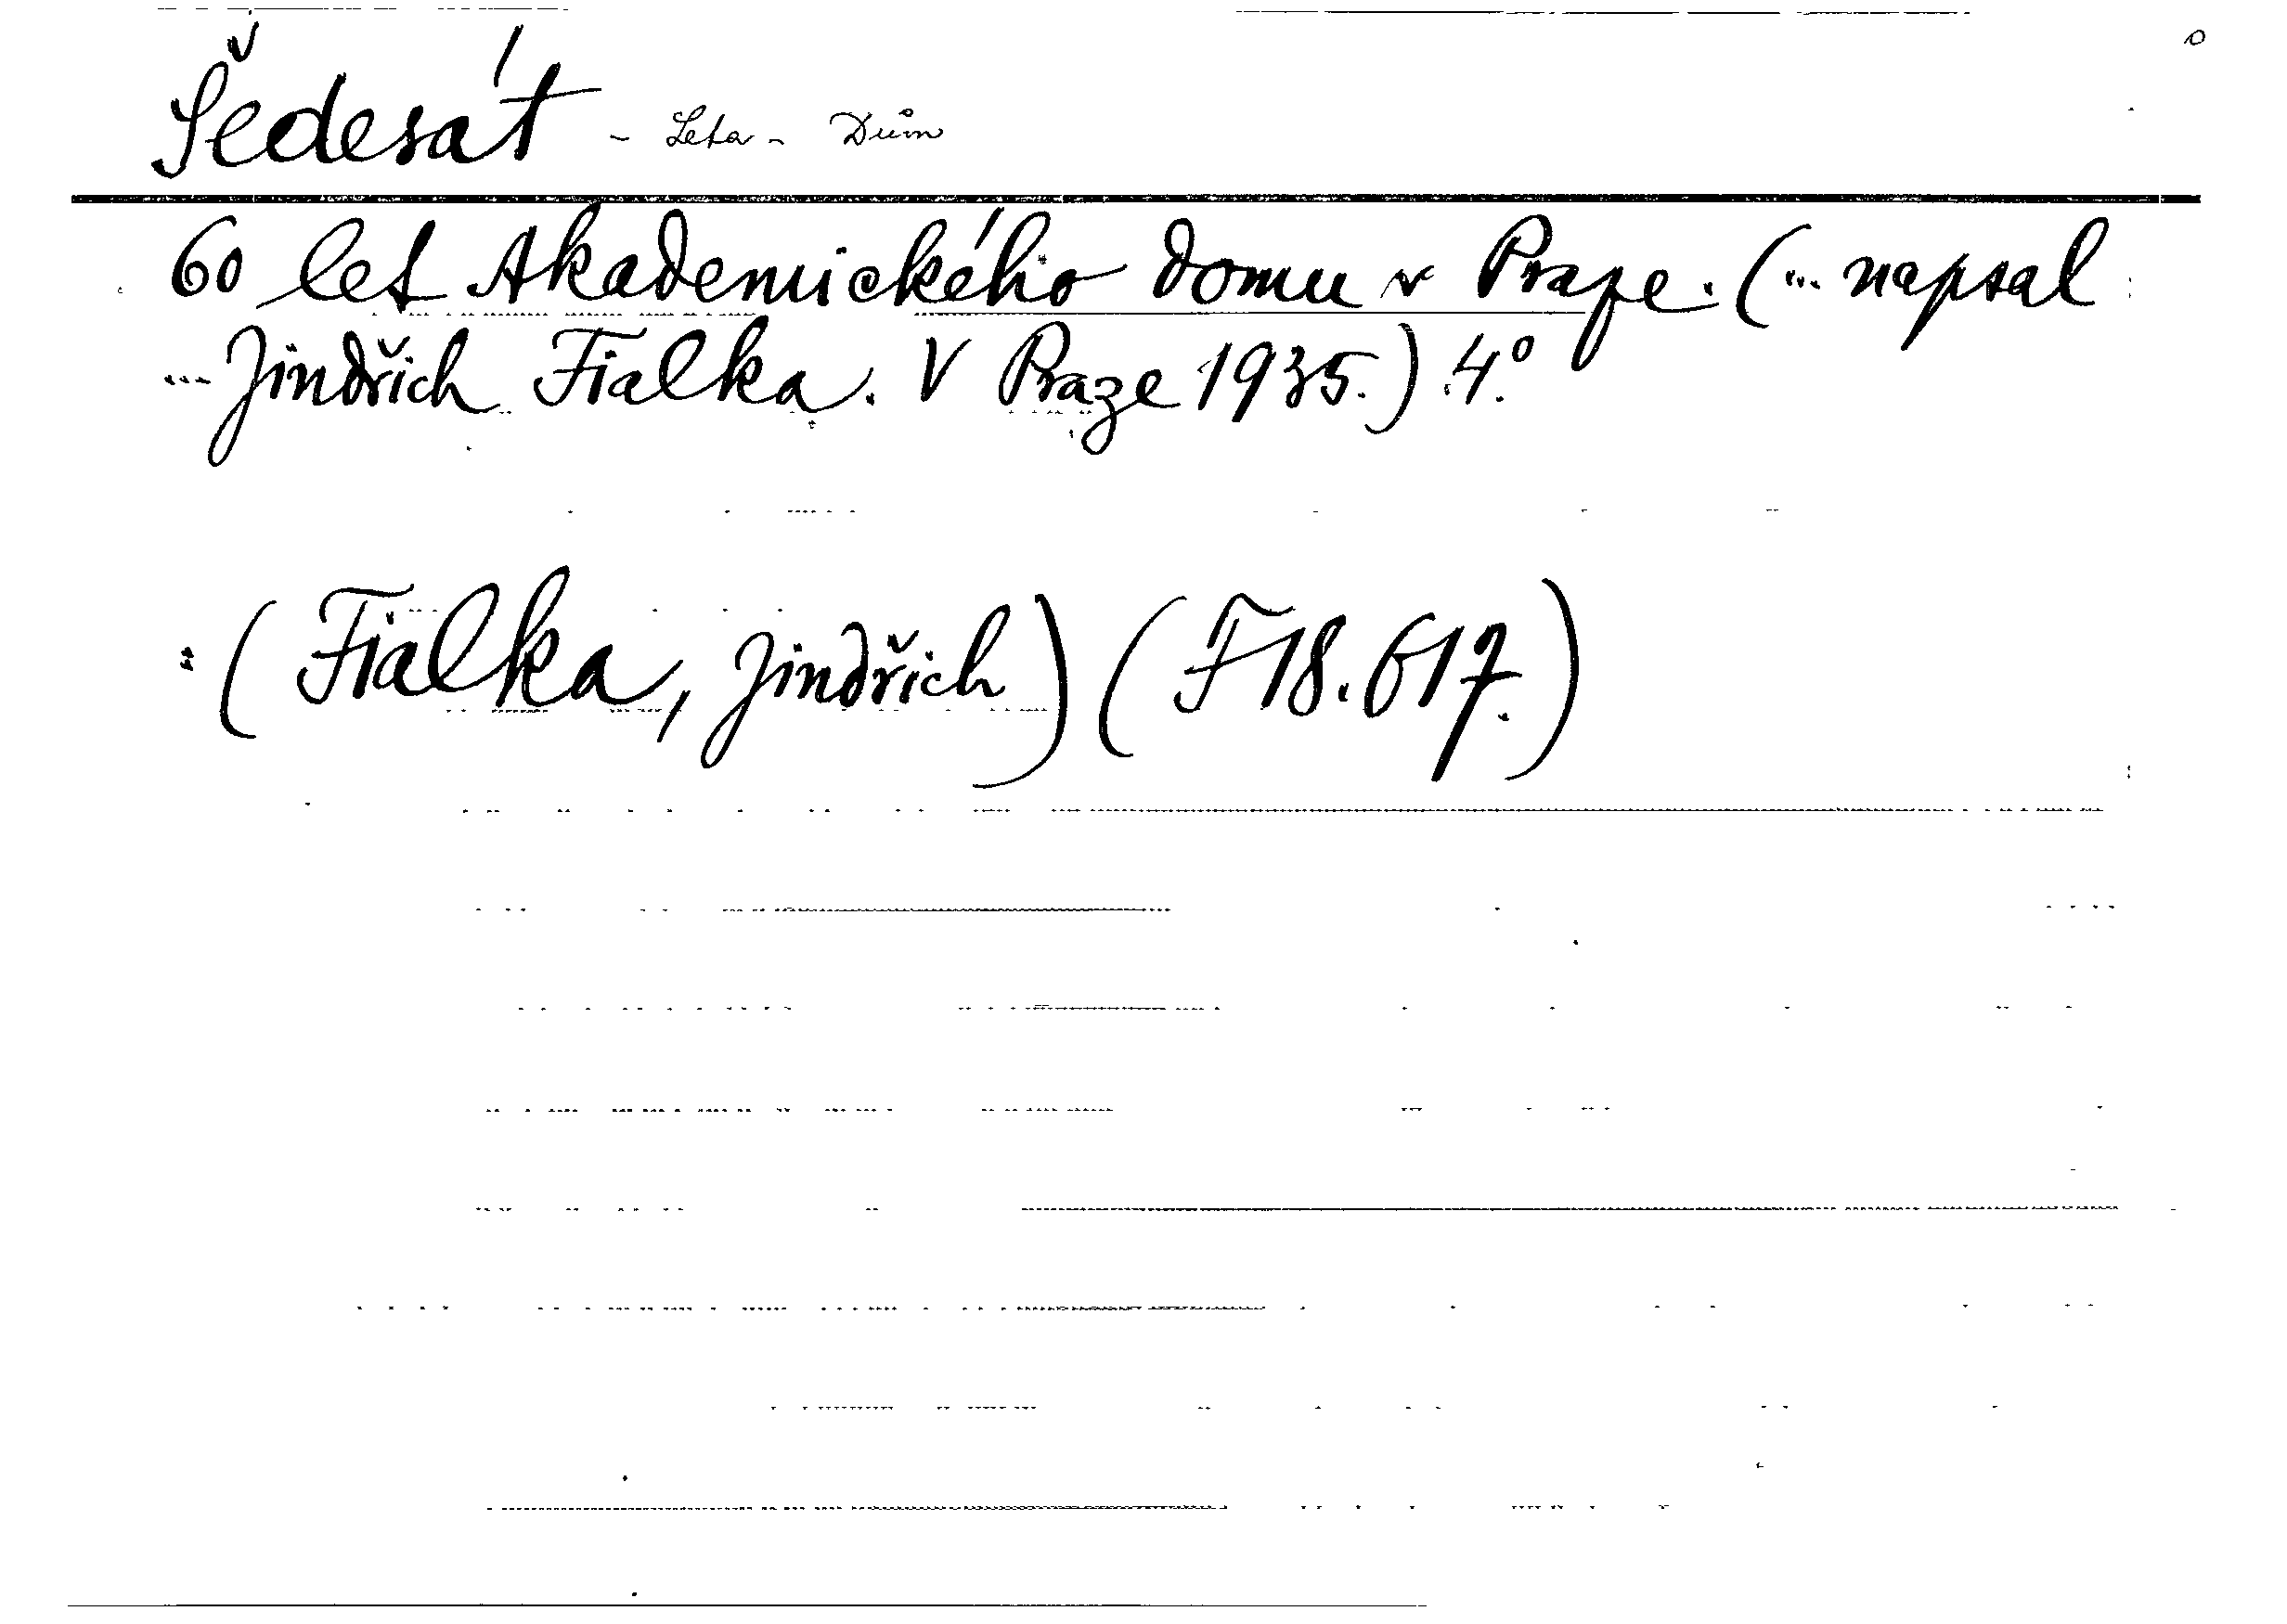 Šedesát - Leta - Dům
60 let Akademického domu v Praze. (... napsal
... Jindřich Fialka. V Praze 1935.) 4.°
(Fialka, Jindřich) (F 18.617.)